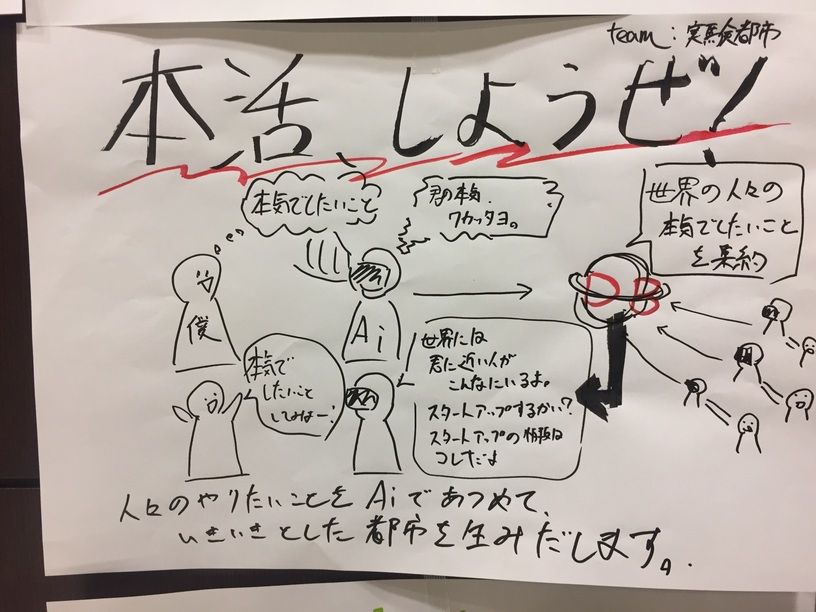 team：実験都市
本活、しようぜ！
本気でしたいこと
君の本気、
ワカッタヨ。
世界の人々の
本気でしたいこと
を集約
僕
Ai
DB
本気で
したいこと
してみよー！
世界には
君に近い人が
こんなにいるよ。
スタートアップするかい？
スタートアップの情報は
コレだよ
人々のやりたいことをAiであつめて、
いきいきとした都市を生みだします。